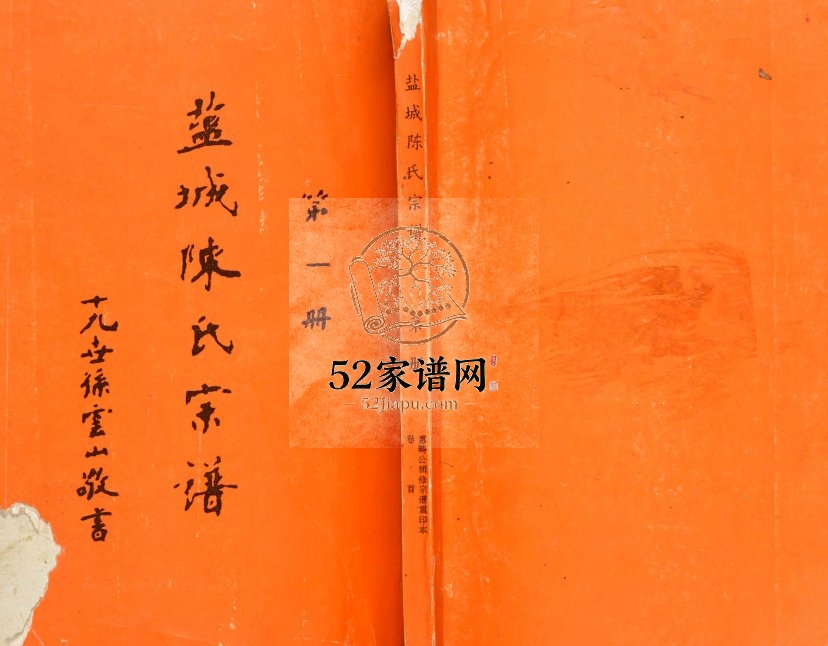 第一册
盐城陳氏宗谱
十九世孫雲山敬書
盐城陈氏宗谱 第 册
惠映公辑修宗谱重印本
卷首
52家谱网
52jiapu.com